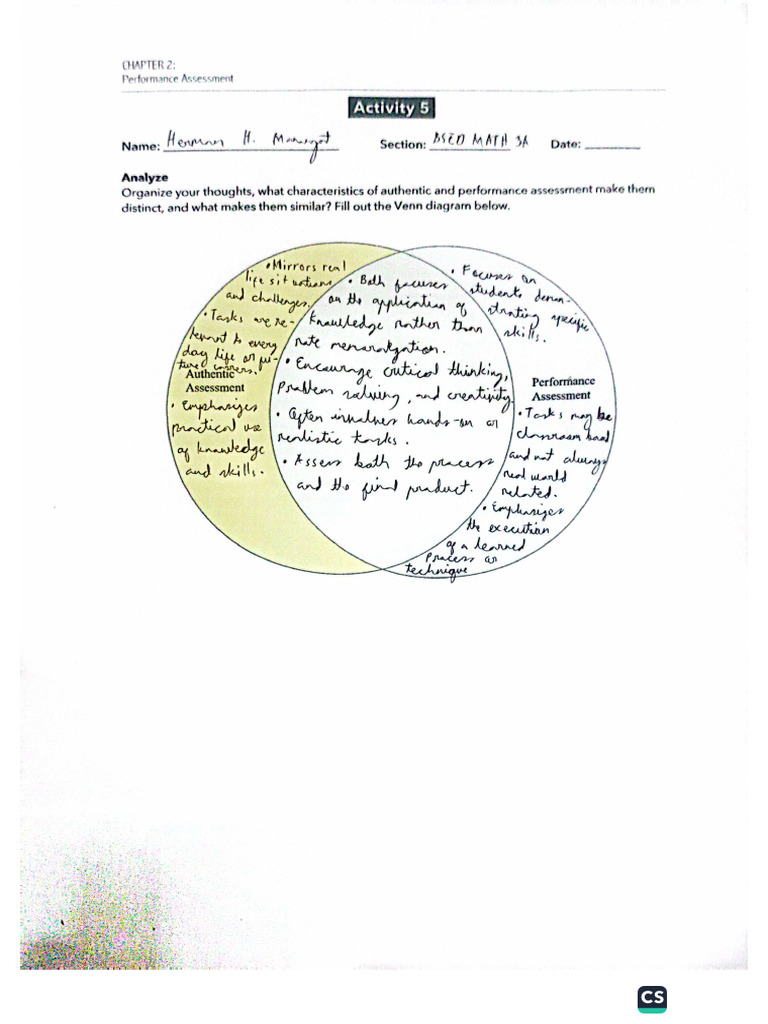 CHAPTER 2:
Performance Assessment
Activity 5
Name: Herman H.
Section: BSED MATH 3A
Date:
Analyze
Organize your thoughts, what characteristics of authentic and performance assessment make them
distinct, and what makes them similar? Fill out the Venn diagram below.
• Mirrors real
life situations
and challenges.
• Tasks are re-
levant to every
day life or fu-
ture careers.
Authentic
Assessment
• Emphasizes
practical use
of knowledge
and skills.
• Both focuses
on the application of
knowledge rather than
rote memorization.
• Encourage critical thinking,
problem solving, and creativity.
• Often involves hands-on or
realistic tasks.
• Assess both the process
and the final product.
• Focuses on
students demon-
strating specific
skills.
Performance
Assessment
• Tasks may be
classroom based
and not always
real world
related.
• Emphasizes
the execution
of a learned
process or
technique
CS